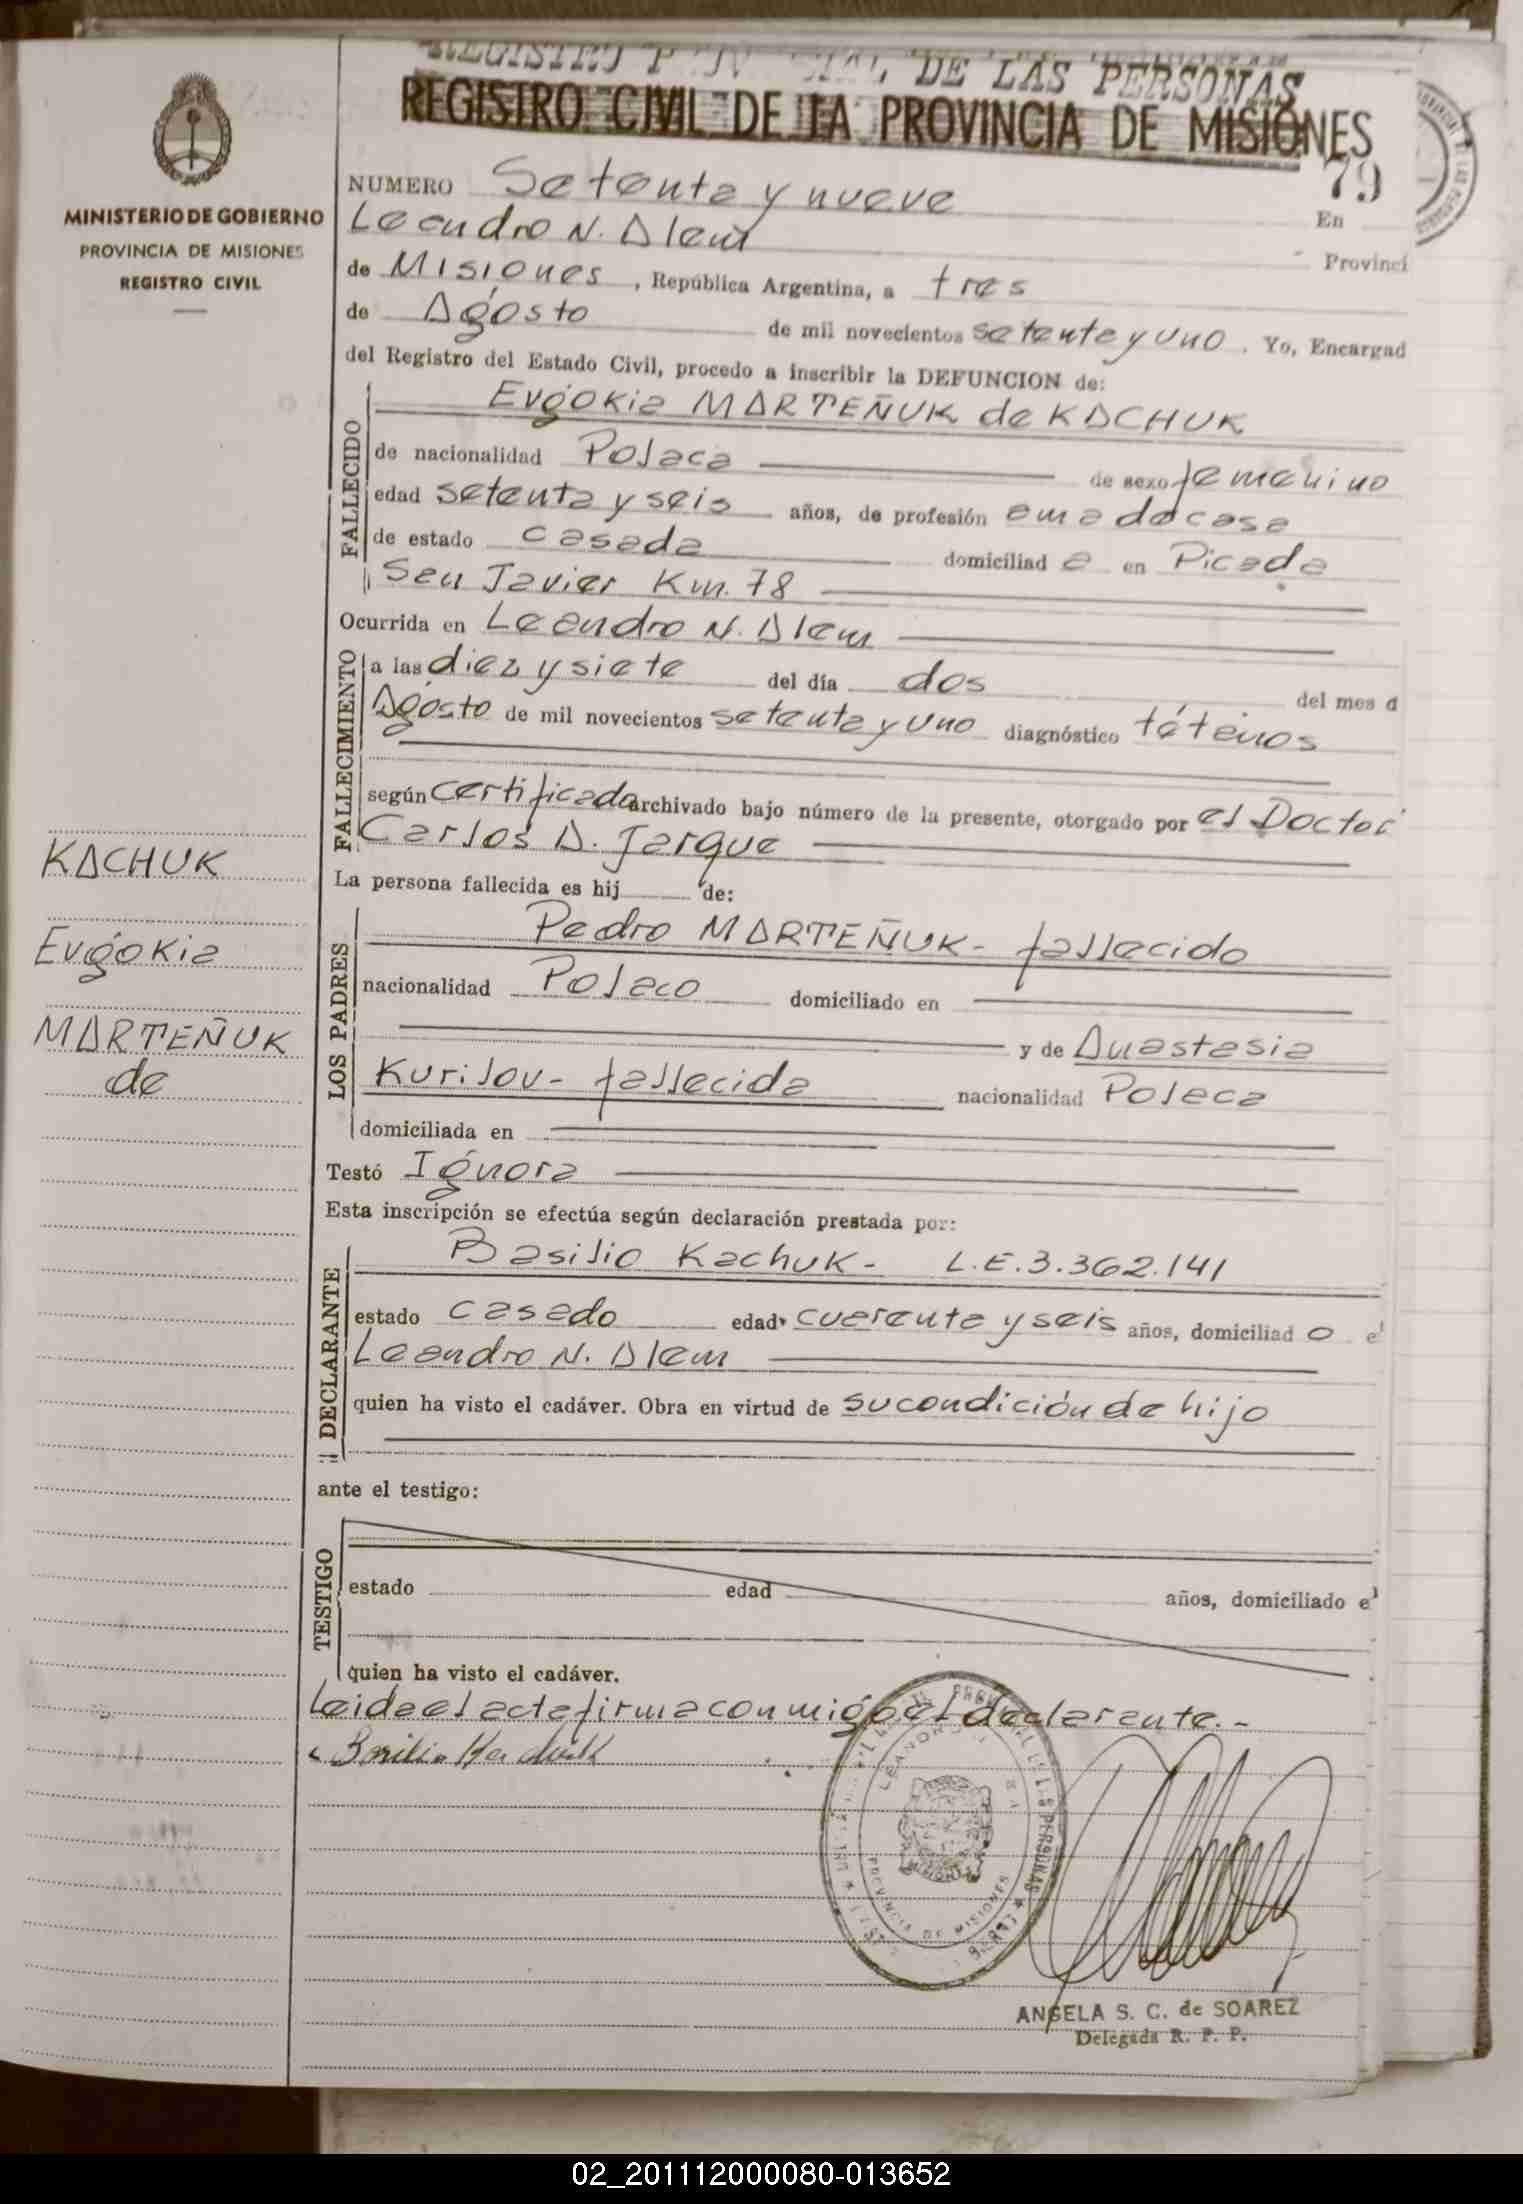 DE LAS PERSONAS
REGISTRO CIVIL DE LA PROVINCIA DE MISIONES
79
MINISTERIO DE GOBIERNO
PROVINCIA DE MISIONES
REGISTRO CIVIL
NUMERO Setenta y nueve En
Leandro N. Alem Provinci
de Misiones, República Argentina, a tres
de Agosto de mil novecientos setenta y uno. Yo, Encargad
del Registro del Estado Civil, procedo a inscribir la DEFUNCION de:
FALLECIDO
Evgokia MARTEÑUK de KACHUK
de nacionalidad Polaca de sexo femenino
edad setenta y seis años, de profesión ama de casa
de estado casada domiciliad a en Picada
San Javier Km. 78
Ocurrida en Leandro N. Alem
FALLECIMIENTO
a las diez y siete del día dos del mes d
Agosto de mil novecientos setenta y uno diagnóstico tétanos
según certificado archivado bajo número de la presente, otorgado por el Doctor
Carlos A. Jarque
La persona fallecida es hij de:
LOS PADRES
Pedro MARTEÑUK- fallecido
nacionalidad Polaco domiciliado en
y de Anastasia
Kurilov- fallecida nacionalidad Polaca
domiciliada en
Testó Ignora
Esta inscripción se efectúa según declaración prestada por:
DECLARANTE
Basilio Kachuk- L.E. 3.362.141
estado casado edad cuarenta y seis años, domiciliad o e
Leandro N. Alem
quien ha visto el cadáver. Obra en virtud de su condición de hijo
ante el testigo:
TESTIGO
estado edad años, domiciliado e
quien ha visto el cadáver.
Leida el acta firma conmigo el declarante.-
KACHUK
Evgokia
MARTEÑUK
de
PROVINCIA DE MISIONES
MISIONES
ANGELA S. C. de SOAREZ
Delegada R. P. P.
02_201112000080-013652